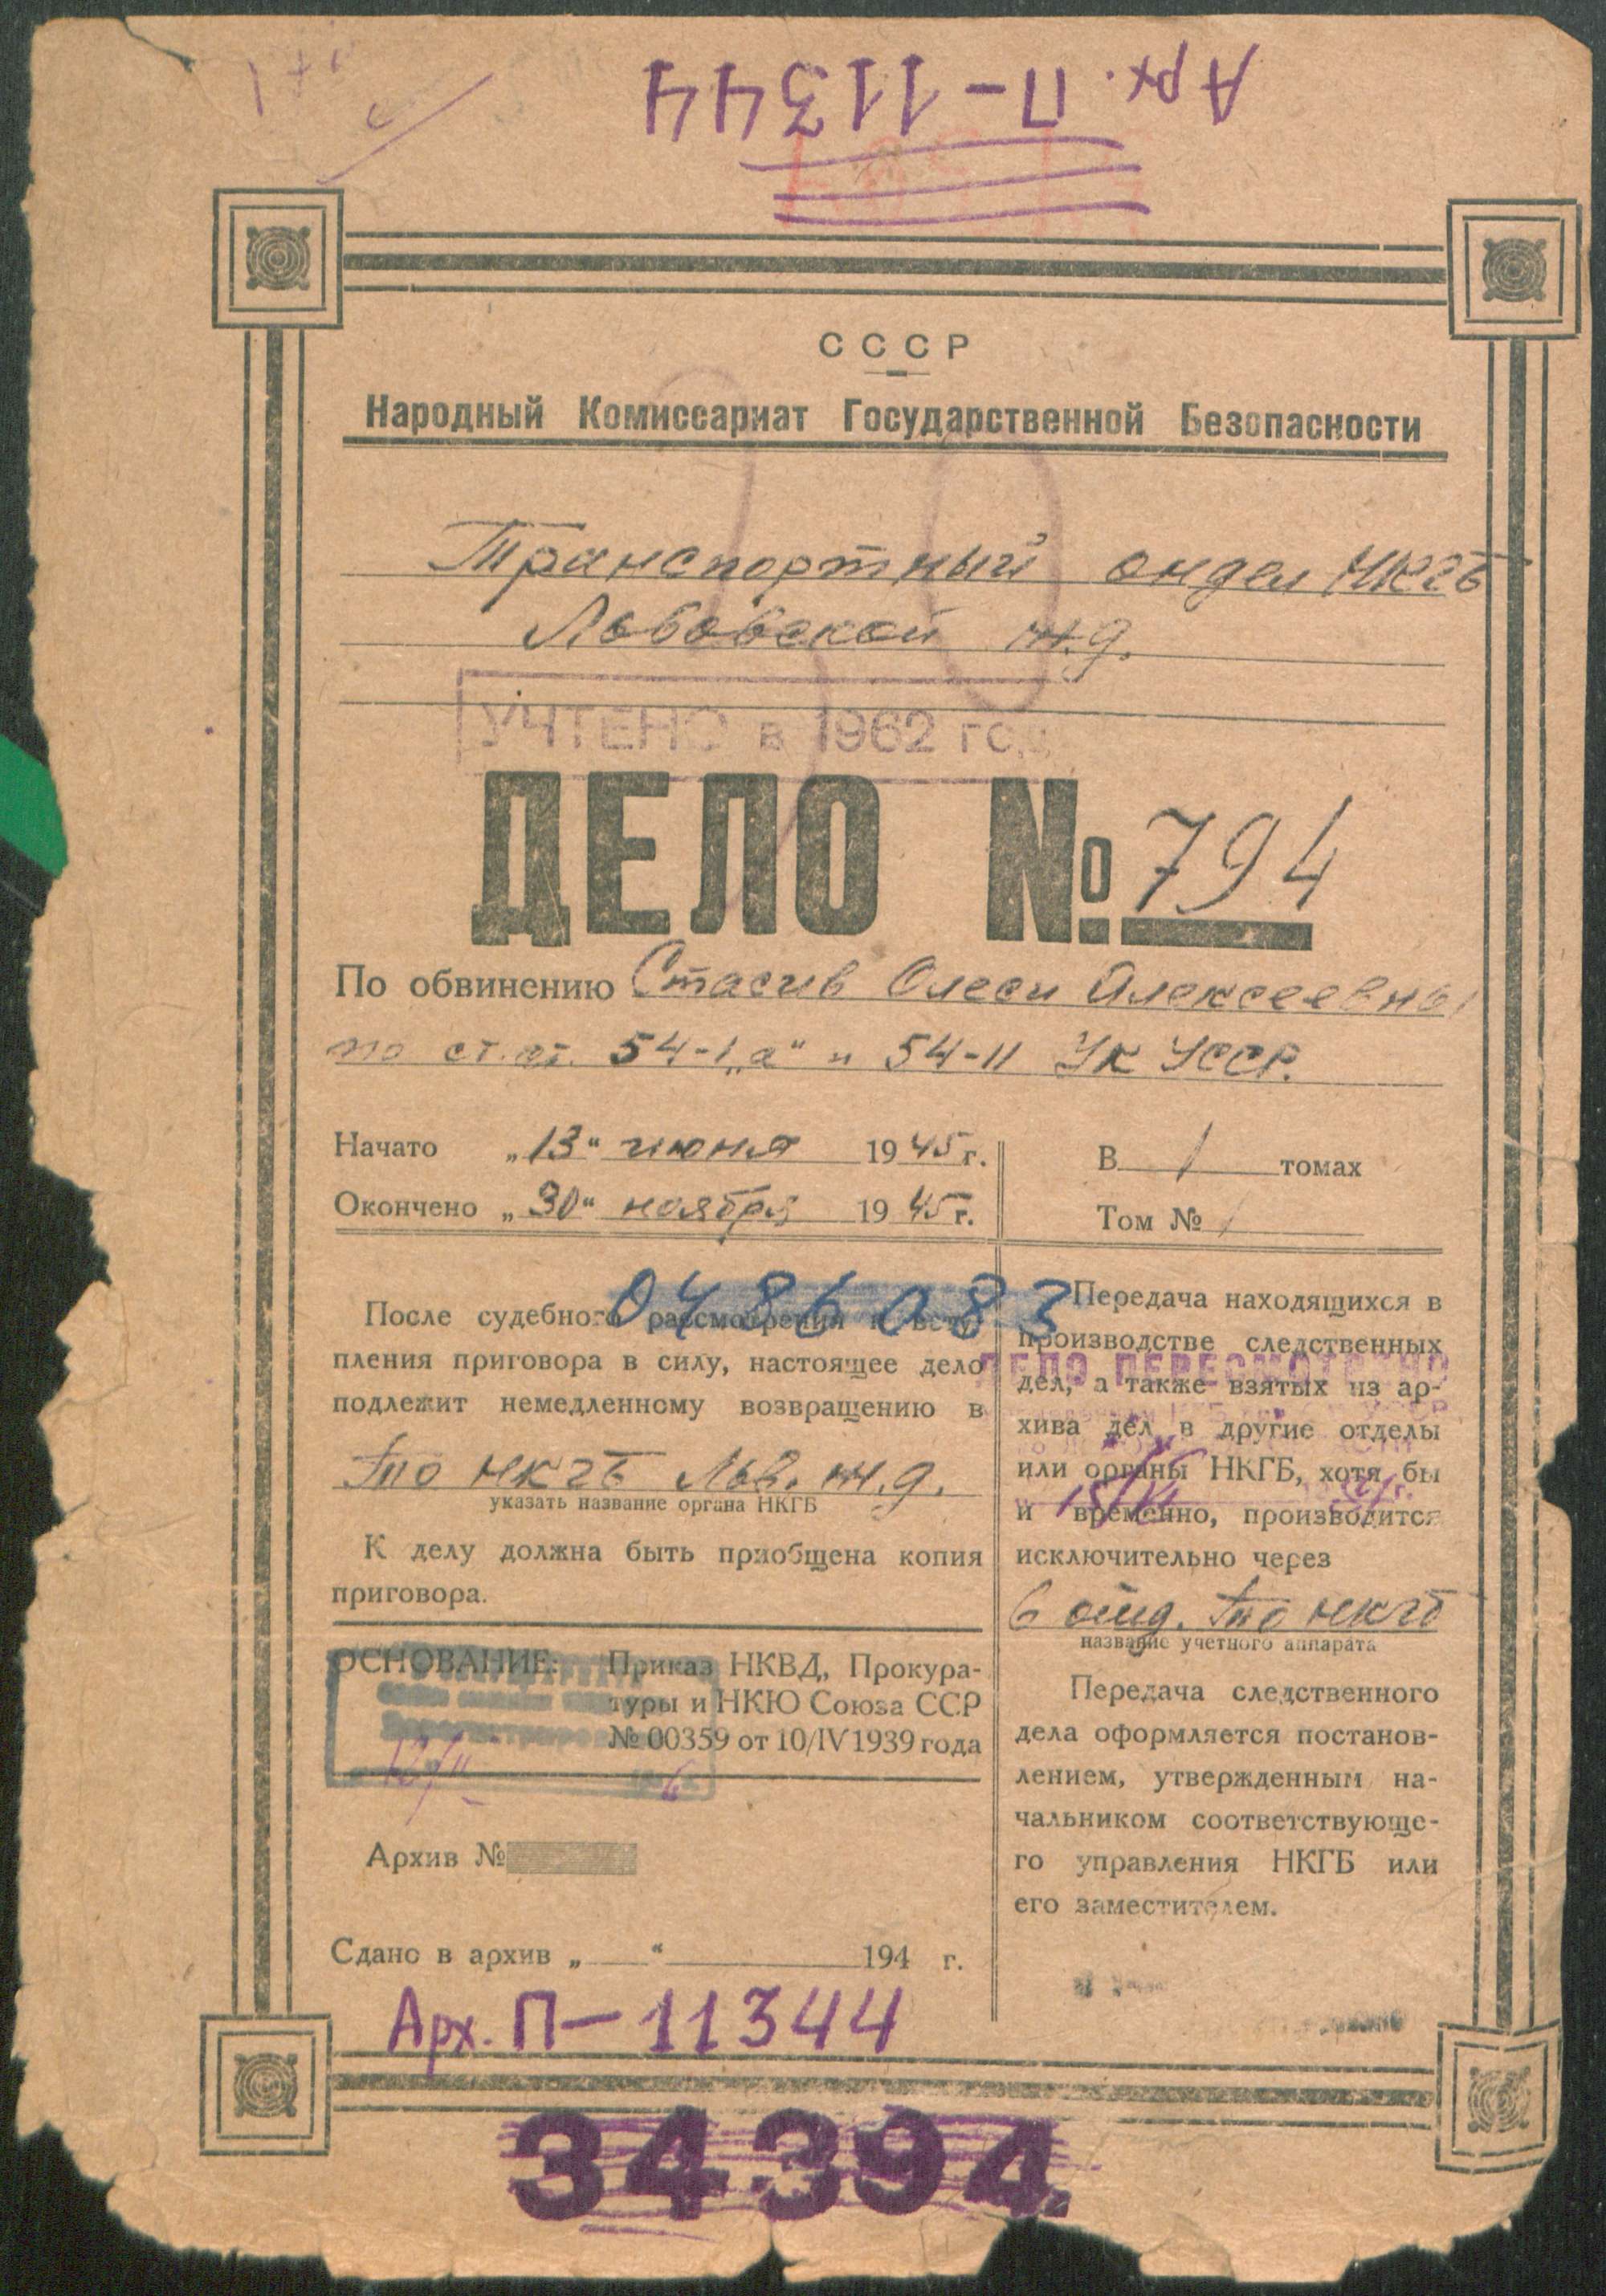 Арх. П-11344
СССР
Народный Комиссариат Государственной Безопасности
Транспортный отдел НКГБ
Львовской ж.д.
УЧТЕНО в 1962 год
ДЕЛО № 794
По обвинению Стасив Олеси Алексеевны
по ст.ст. 54-1„а" и 54-11 УК УССР.
Начато „13" июня 1945 г.
Окончено „30" ноября 1945 г.
В 1 томах
Том № 1
0486083
После судебного рассмотрения и всту-
пления приговора в силу, настоящее дело
подлежит немедленному возвращению в
ТО НКГБ Льв. ж.д.
указать название органа НКГБ
К делу должна быть приобщена копия
приговора.
ОСНОВАНИЕ: Приказ НКВД, Прокура-
туры и НКЮ Союза ССР
№ 00359 от 10/IV 1939 года
Архив №
Сдано в архив „ " 194 г.
Передача находящихся в
производстве следственных
ДЕЛО ПЕРЕСМОТРЕНО
дел, а также взятых из ар-
хива дел в другие отделы
или органы НКГБ, хотя бы
и временно, производится
исключительно через
6 отд. ТО НКГБ
название учетного аппарата
Передача следственного
дела оформляется постанов-
лением, утвержденным на-
чальником соответствующе-
го управления НКГБ или
его заместителем.
Арх. П-11344
34394